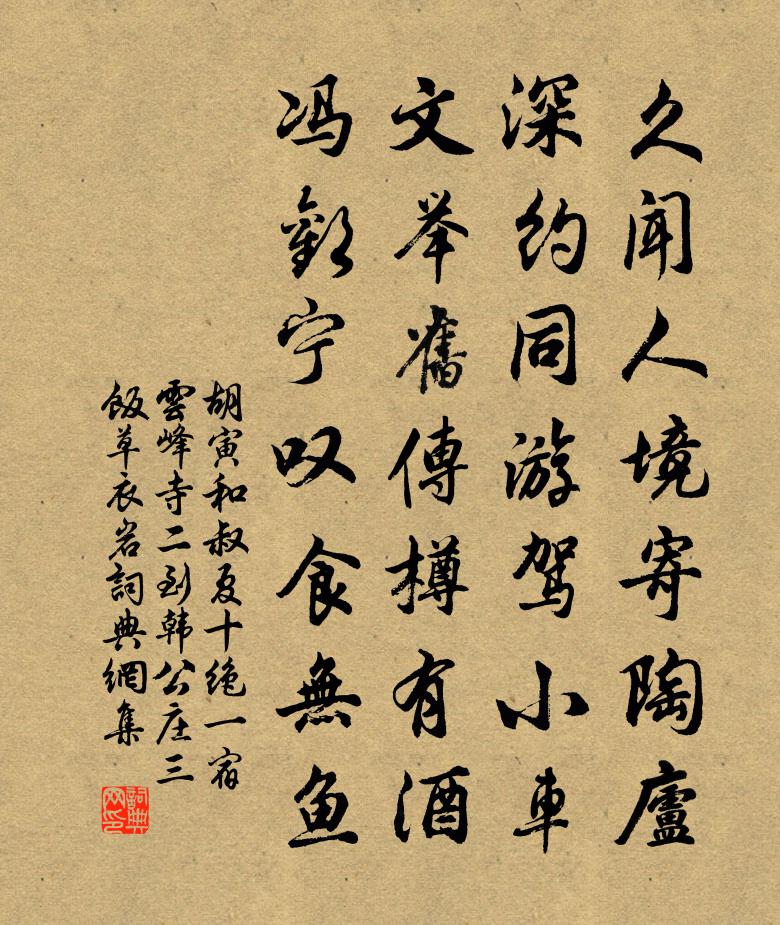 久闻人境寄陶廬
深约同游駕小車
文举舊傳樽有酒
冯歡宁叹食無鱼
胡寅和叔夏十絶一宿
雲峰寺二到韩公庄三
飯草衣岩詞典網集
詞典网印